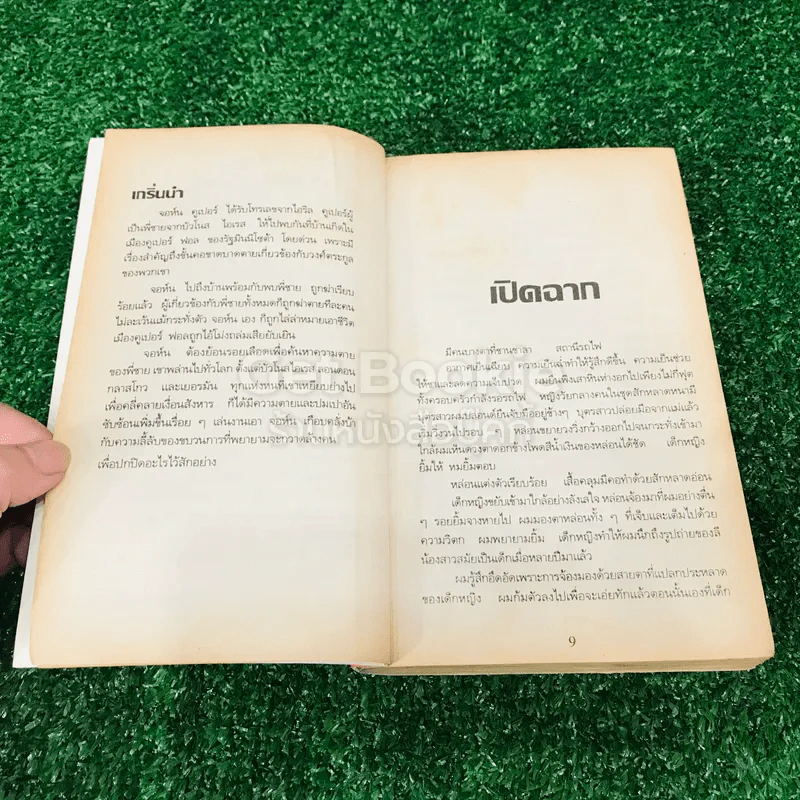 เกริ่นนำ
จอห์น คูเปอร์ ได้รับโทรเลขจากไอริล คูเปอร์ผู้
เป็นพี่ชายจากบัวโนส ไอเรส ให้ไปพบกันที่บ้านเกิดใน
เมืองคูเปอร์ ฟอล ของรัฐมินนิโซต้า โดยด่วน เพราะมี
เรื่องสำคัญถึงขั้นคอขาดบาดตายเกี่ยวข้องกับวงศ์ตระกูล
ของพวกเขา
จอห์น ไปถึงบ้านพร้อมกับพบพี่ชาย ถูกฆ่าเรียบ
ร้อยแล้ว ผู้เกี่ยวข้องกับพี่ชายทั้งหมดก็ถูกฆ่าตายทีละคน
ไม่ละเว้นแม้กระทั่งตัว จอห์น เอง ก็ถูกไล่ล่าหมายเอาชีวิต
เมืองคูเปอร์ ฟอลถูกไอ้โม่งถล่มเสียยับเยิน
จอห์น ต้องย้อนรอยเลือดเพื่อค้นหาความตาย
ของพี่ชาย เขาพล่านไปทั่วโลก ตั้งแต่บัวโนสไอเรส ลอนดอน
กลาสโกว และเยอรมัน ทุกแห่งหนที่เขาเหยียบย่างไป
เพื่อคลี่คลายเงื่อนสังหาร ก็ได้มีความตายและปมเปาอัน
ซับซ้อนเพิ่มขึ้นเรื่อย ๆ เล่นงานเอา จอห์น เกือบคลั่งบ้า
กับความลี้ลับของขบวนการที่พยายามจะกวาดล้างคน
เพื่อปกปิดอะไรไว้สักอย่าง
เปิดฉาก
มีคนบางตาที่ชานชาลา สถานีรถไฟ
อากาศเย็นเฉียบ ความเย็นฉ่ำทำให้รู้สึกดีขึ้น ความเย็นช่วย
ให้ชาและลดความเจ็บปวด ผมยืนพิงเสาหินห่างออกไปเพียงไม่กี่ฟุต
ทั้งครอบครัวกำลังรอรถไฟ หญิงวัยกลางคนในชุดสักหลาดหนามี
บุตรสาวผมบลอนด์ยืนจับมืออยู่ข้างๆ บุตรสาวปล่อยมือจากแม่แล้ว
เดินวงวนไปรอบๆ หล่อนขยายวงวิ่งกว้างออกไปจนกระทั่งเข้ามา
ใกล้ผมเห็นดวงตาดอกข้างโพดสีน้ำเงินของหล่อนได้ชัด เด็กหญิง
ยิ้มให้ หมยิ้มตอบ
หล่อนแต่งตัวเรียบร้อย เสื้อคลุมมีคอทำด้วยสักหลาดอ่อน
เด็กหญิงขยับเข้ามาใกล้อย่างลังเลใจ หล่อนจ้องมาที่ผมอย่างตื่น
ๆ รอยยิ้มจางหายไป ผมมองตาหล่อนทั้ง ๆ ที่เจ็บและเต็มไปด้วย
ความวิตก ผมพยายามยิ้ม เด็กหญิงทำให้ผมนึกถึงรูปถ่ายของลี
น้องสาวสมัยเป็นเด็กเมื่อหลายปีมาแล้ว
ผมรู้สึกอึดอัดเพราะการจ้องมองด้วยสายตาที่แปลกประหลาด
ของเด็กหญิง ผมก้มตัวลงไปเพื่อจะเอ่ยทักแล้วตอนนั้นเองที่เด็ก
9